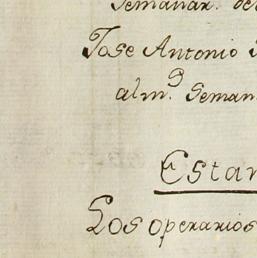 Semanar.
Jose Antonio
alm.º Seman
Estan
Los operarios